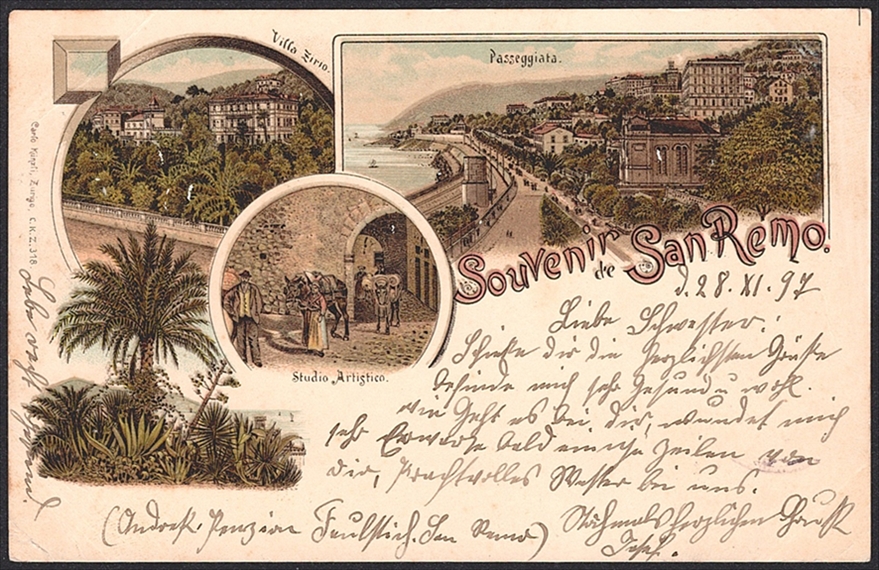 Villa Zirio.
Passeggiata.
Souvenir de San Remo.
Studio Artistico.
Carlo Künzli, Zurigo, C.K.Z. 318.
d. 28. XI. 97
Liebe Schwester!
Schicke dir die herzlichsten Grüße
befinde mich sehr gesund u. wohl.
wie geht es bei dir, wundert mich
sehr Erwarte bald einige Zeilen von
dir, Prachtvolles Wetter bei uns.
Nochmals herzlichen Gruß
Josef.
(Andreß. Penzion Faulstich. San Remo)
Lebe recht